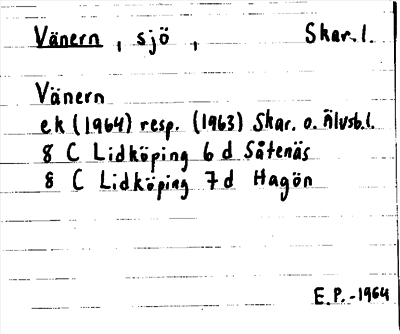 Vänern, sjö, Skar.l.
Vänern
ek (1964) resp. (1963) Skar. o. Älvsb.l.
8 C Lidköping 6 d Såtenäs
8 C Lidköping 7 d Hagön
E.P.-1964